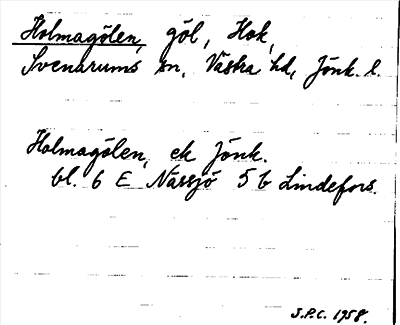 Holmagölen, göl, Hok,
Svenarums sn, Västra hd, Jönk. l.
Holmagölen, ek Jönk.
bl. 6 E Nässjö 5 b Lindefors.
S.P.C. 1958.